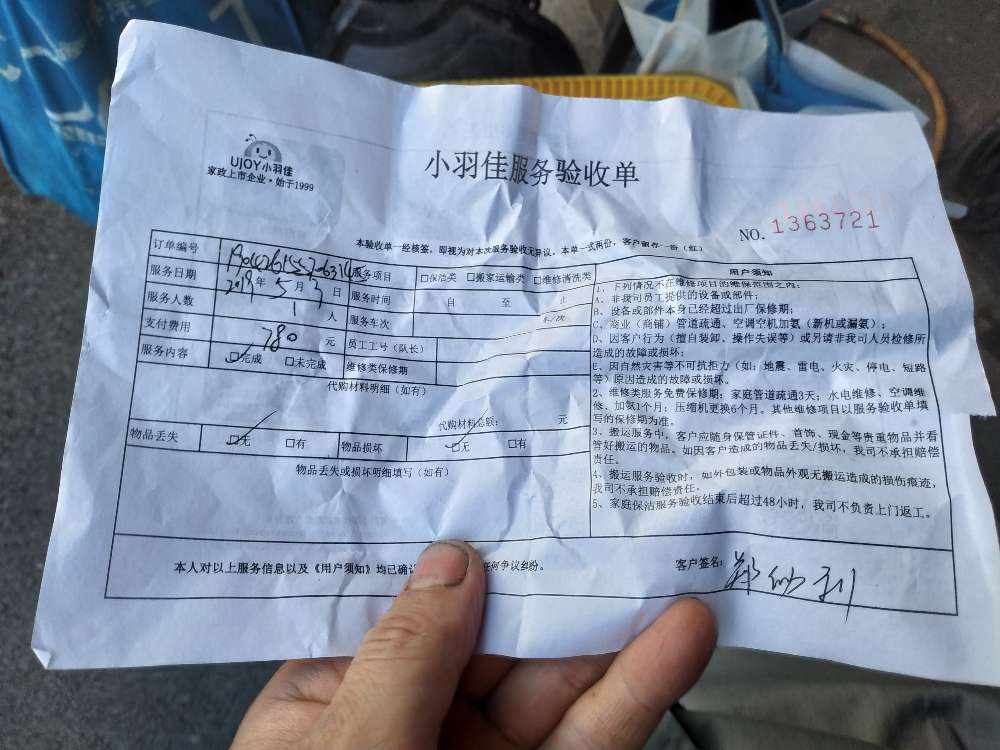 UJOY小羽佳
家政上市企业·始于1999
小羽佳服务验收单
NO. 1363721
本验收单一经核签，即视为对本次服务验收无异议。本单一式两份，客户留存一份（红）
订单编号
服务项目 □保洁类 □搬家运输类 □维修清洗类
服务日期 2019年5月3日 服务时间 自 至 止
服务人数 1 人 服务车次 车/次
支付费用 780 元 员工工号（队长）
服务内容 □完成 □未完成 维修类保修期
代购材料明细（如有）
代购材料总额： 元
物品丢失 □无 □有 物品损坏 □无 □有
物品丢失或损坏明细填写（如有）
用户须知
1、下列情况不在维修项目的维保范围之内：
A、非我司员工提供的设备或部件；
B、设备或部件本身已经超过出厂保修期；
C、商业（商铺）管道疏通、空调空机加氨（新机或漏氨）；
D、因客户行为（擅自装卸、操作失误等）或另请非我司人员检修所
造成的故障或损坏；
E、因自然灾害等不可抗拒力（如：地震、雷电、火灾、停电、短路
等）原因造成的故障或损坏。
2、维修类服务免费保修期：家庭管道疏通3天；水电维修、空调维
修、加氨1个月；压缩机更换6个月。其他维修项目以服务验收单填
写的保修期为准。
3、搬运服务中，客户应随身保管证件、首饰、现金等贵重物品并看
管好搬运的物品。如因客户造成的物品丢失/损坏，我司不承担赔偿
责任。
4、搬运服务验收时，如外包装或物品外观无搬运造成的损伤痕迹，
我司不承担赔偿责任。
5、家庭保洁服务验收结束后超过48小时，我司不负责上门返工。
本人对以上服务信息以及《用户须知》均已确 任何争议纠纷。
客户签名：